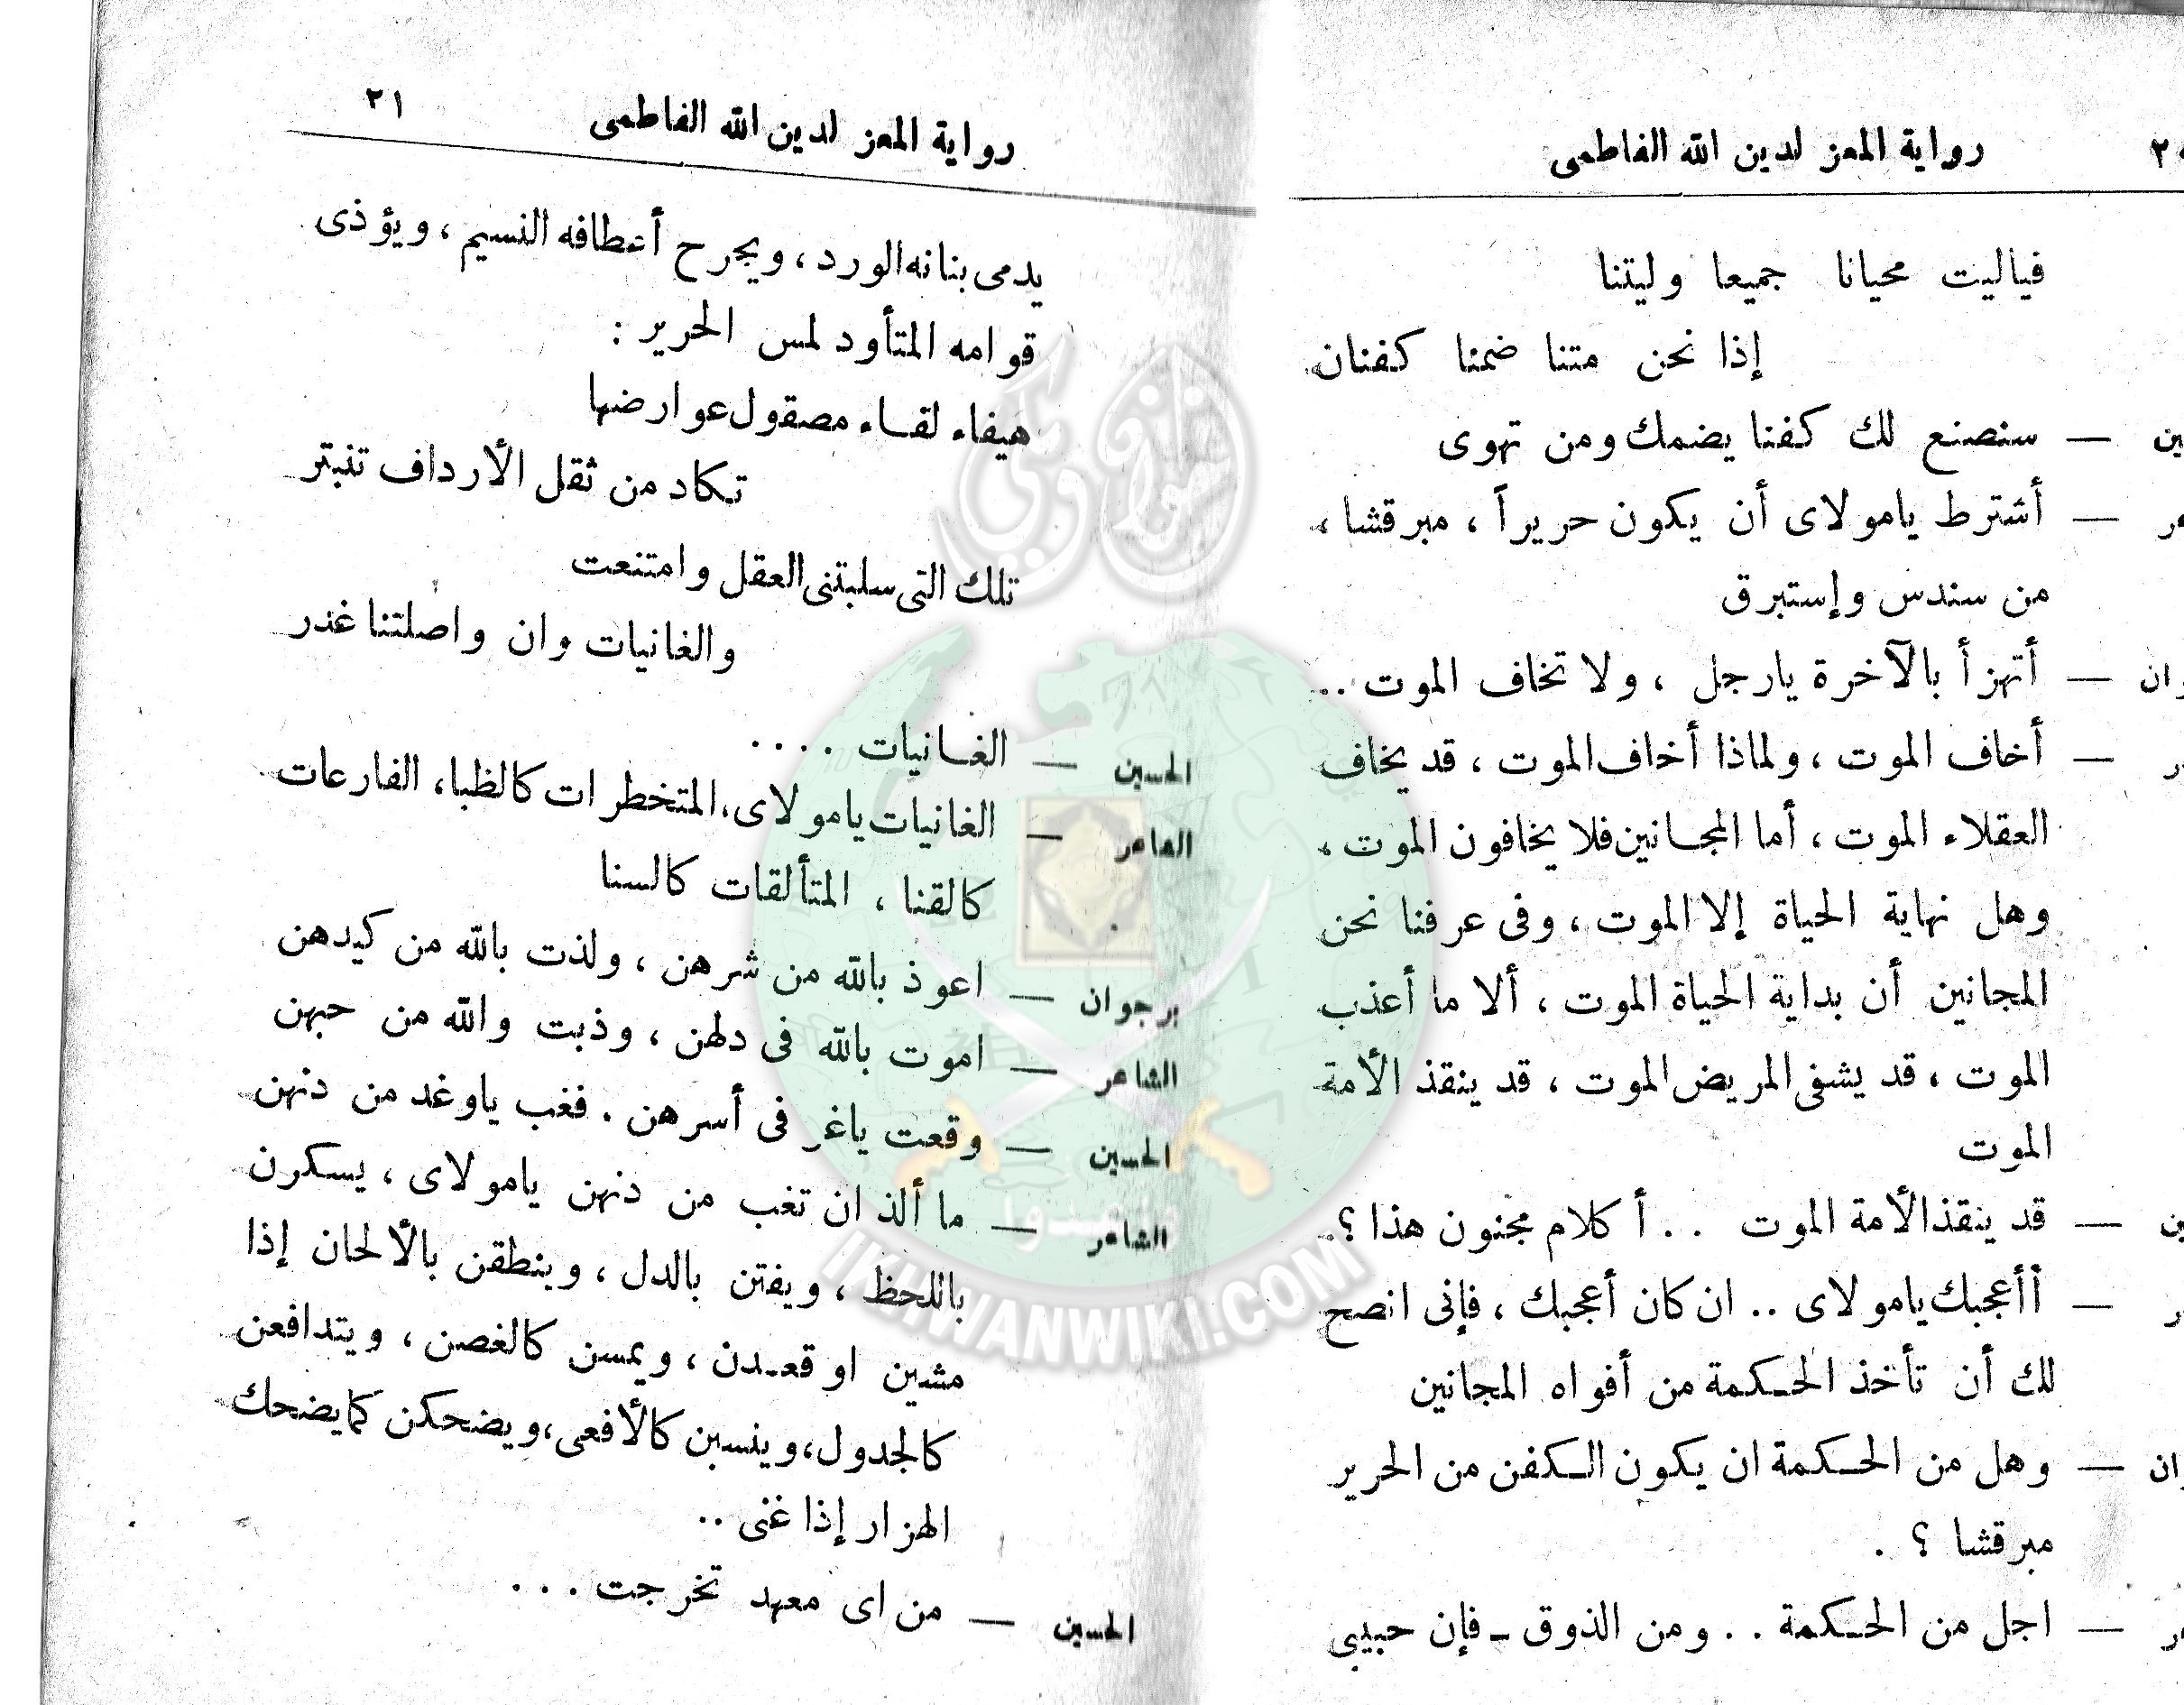 رواية المعز لدين الله الفاطمى
فياليت محيانا جميعا وليتنا
إذا نحن متنا ضمنا كفنان
— سنصنع لك كفنا يضمك ومن تهوى
— أشترط يامولاى أن يكون حريراً ، مبرقشا ،
من سندس وإستبرق
— أتهزأ بالآخرة يارجل ، ولا تخاف الموت ..
— أخاف الموت ، ولماذا أخاف الموت ، قد يخاف
العقلاء الموت ، أما المجانين فلا يخافون الموت ،
وهل نهاية الحياة إلا الموت ، وفى عرفنا نحن
المجانين أن بداية الحياة الموت ، ألا ما أعذب
الموت ، قد يشفى المريض الموت ، قد ينقذ الأمة
الموت
— قد ينقذ الأمة الموت . . أكلام مجنون هذا ؟.
— أأعجبك يامولاى .. ان كان أعجبك ، فإنى انصح
لك أن تأخذ الحكمة من أفواه المجانين
— وهل من الحكمة ان يكون الكفن من الحرير
مبرقشا ؟ .
— اجل من الحكمة . . ومن الذوق ـ فإن حبيبى
رواية المعز لدين الله الفاطمى ٢١
يدمى بنانه الورد ، ويجرح أعطافه النسيم ، ويؤذى
قوامه المتأود لمس الحرير :
هيفاء لفاء مصقول عوارضها
تكاد من ثقل الأرداف تنبتر
تلك التى سلبتنى العقل وامتنعت
والغانيات وان واصلتنا غدر
الحسين — الغانيات . . . .
الشاعر — الغانيات يامولاى ، المتخطرات كالظباء ، الفارعات
كالقنا ، المتألقات كالسنا
برجوان — اعوذ بالله من شرهن ، ولذت بالله من كيدهن
الشاعر — اموت بالله فى دلهن ، وذبت والله من حبهن
الحسين — وقعت ياغر فى أسرهن . فغب ياوغد من دنهن
الشاعر — ما ألذ ان تغب من دنهن يامولاى ، يسكرن
باللحظ ، ويفتن بالدل ، وينطقن بالألحان إذا
مشين او قعدن ، ويمسن كالغصن ، ويتدافعن
كالجدول ، وينسبن كالأفعى ، ويضحكن كما يضحك
الهزار إذا غنى ..
الحسين — من اى معهد تخرجت . . .
IKHWANWIKI.COM